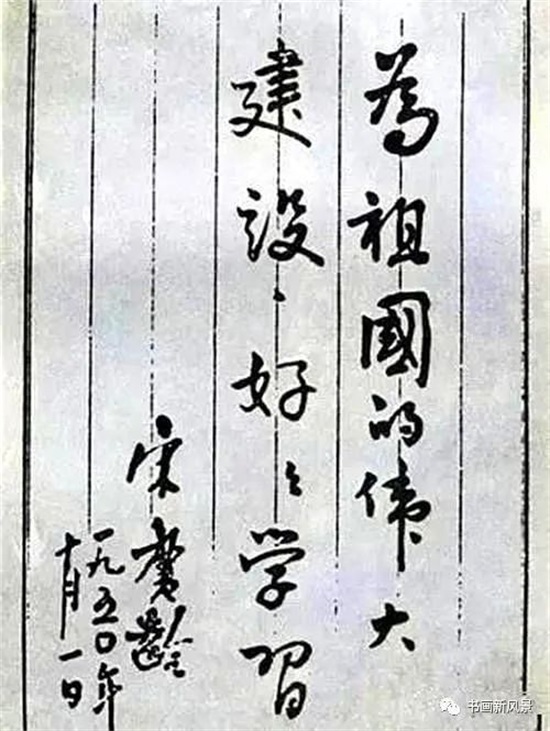 為祖國的偉大
建設、好々学習
宋慶齡
一九五〇年
十月一日
书画新风景